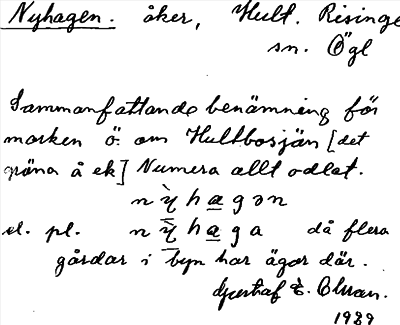 Nyhagen. åker, Hult. Risinge
sn. Ögl
Sammanfattande benämning för
marken ö. om Hultbosjön [det
gröna å ek] Numera allt odlat.
n ỳ h a g ə n
el. pl. n ȳ h a g a då flera
gårdar i byn har ägor där.
Gustaf E. Olsson.
1929